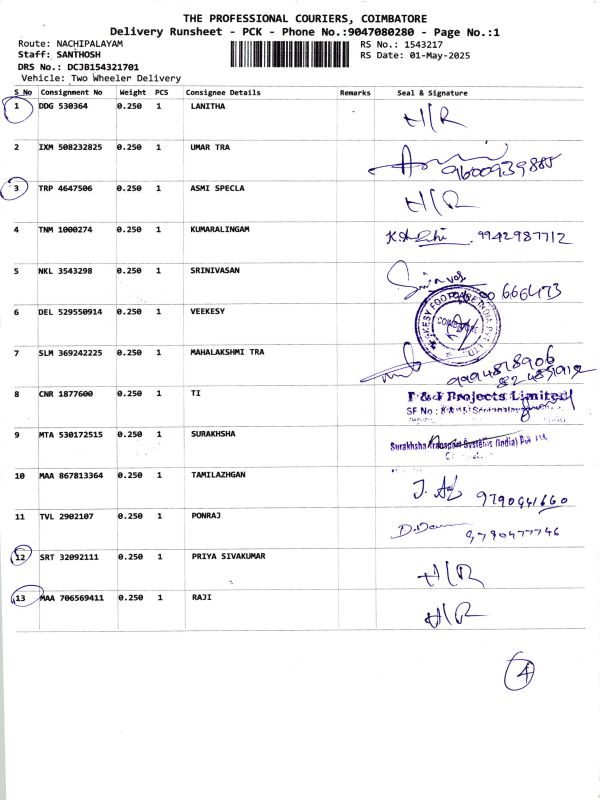 THE PROFESSIONAL COURIERS, COIMBATORE
Delivery Runsheet - PCK - Phone No.:9047080280 - Page No.:1
Route: NACHIPALAYAM
RS No.: 1543217
Staff: SANTHOSH
RS Date: 01-May-2025
DRS No.: DCJB154321701
Vehicle: Two Wheeler Delivery
S_No Consignment No Weight PCS Consignee Details Remarks Seal & Signature
1 DDG 530364 0.250 1 LANITHA H/R
2 IXM 508232825 0.250 1 UMAR TRA 9600939885
3 TRP 4647506 0.250 1 ASMI SPECLA H/R
4 TNM 1000274 0.250 1 KUMARALINGAM 9942987712
5 NKL 3543298 0.250 1 SRINIVASAN 666473
6 DEL 529550914 0.250 1 VEEKESY
7 SLM 369242225 0.250 1 MAHALAKSHMI TRA 9994878906
8 CNR 1877600 0.250 1 TI Projects Limited
SF No :
9 MTA 530172515 0.250 1 SURAKHSHA Surakhsha Transport Systems (India) Pvt. Ltd.
10 MAA 867813364 0.250 1 TAMILAZHGAN 9790641660
11 TVL 2902107 0.250 1 PONRAJ 9790477746
12 SRT 32092111 0.250 1 PRIYA SIVAKUMAR H/R
13 MAA 706569411 0.250 1 RAJI H/R
4